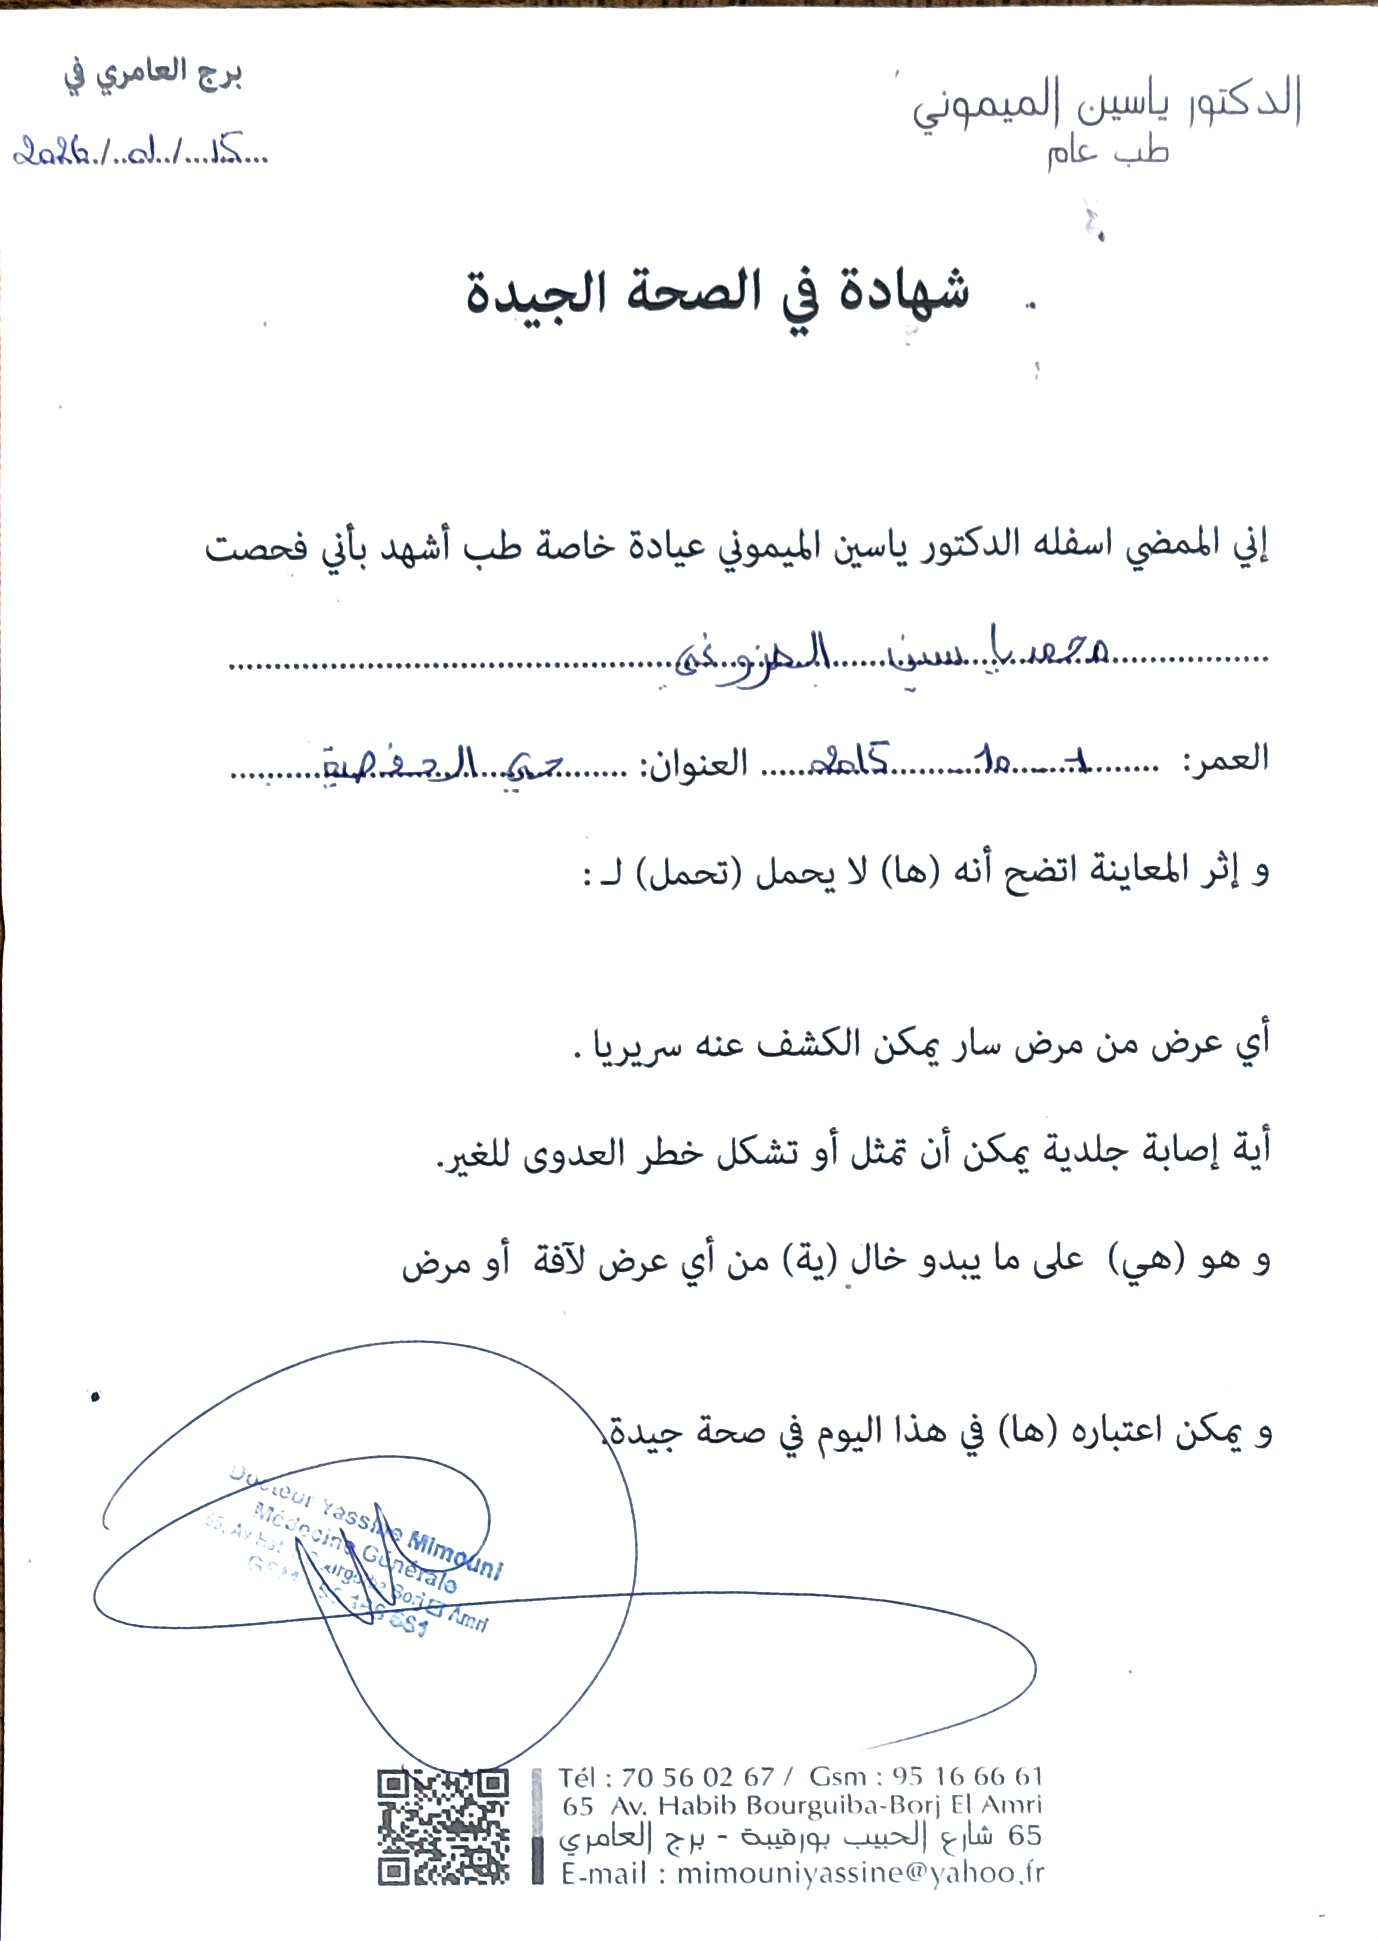 الدكتور ياسين الميموني
طب عام
برج العامري في
15/01/2026
شهادة في الصحة الجيدة
إني الممضي اسفله الدكتور ياسين الميموني عيادة خاصة طب أشهد بأني فحصت
محمد ياسين
العمر: 1 10 2015 العنوان: حي
و إثر المعاينة اتضح أنه (ها) لا يحمل (تحمل) لـ :
أي عرض من مرض سار يمكن الكشف عنه سريريا .
أية إصابة جلدية يمكن أن تمثل أو تشكل خطر العدوى للغير.
و هو (هي) على ما يبدو خال (ية) من أي عرض لآفة أو مرض
و يمكن اعتباره (ها) في هذا اليوم في صحة جيدة.
Docteur Yassine Mimouni
Médecine Générale
65, Av Bourguiba Borj El Amri
Tél : 70 56 02 67 / Gsm : 95 16 66 61
65 Av. Habib Bourguiba-Borj El Amri
65 شارع الحبيب بورقيبة - برج العامري
E-mail : mimouniyassine@yahoo.fr